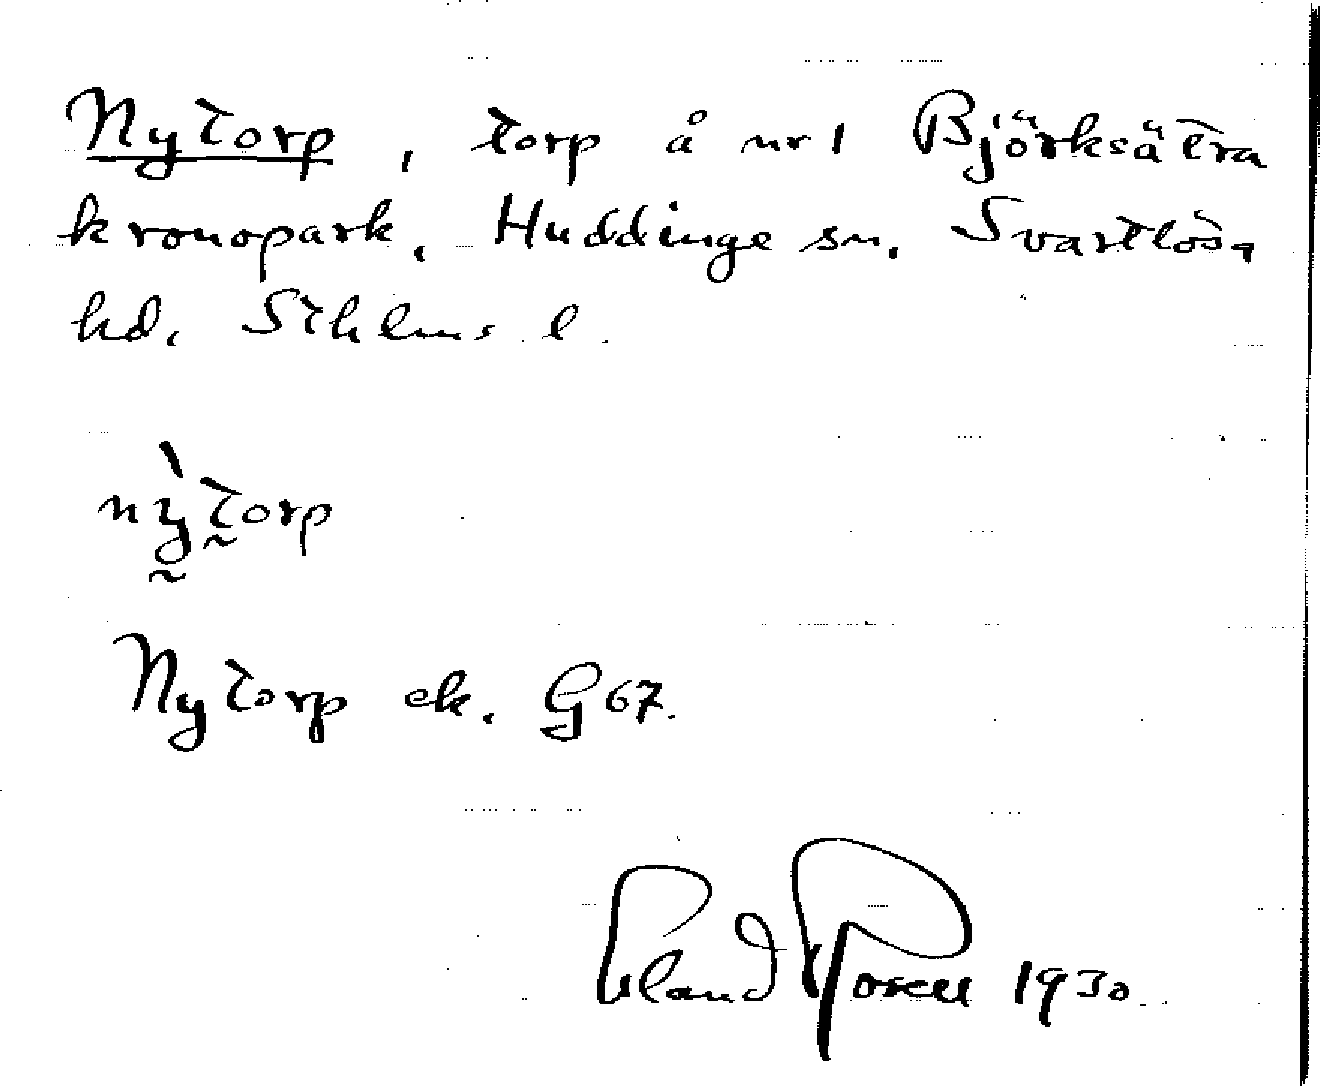 Nytorp, torp å nr 1 Björksätra
kronopark, Huddinge sn, Svartlösa
hd, Sthlms l.
nỳ̖torp
Nytorp ek. G 67.
Erland Rosell 1930.